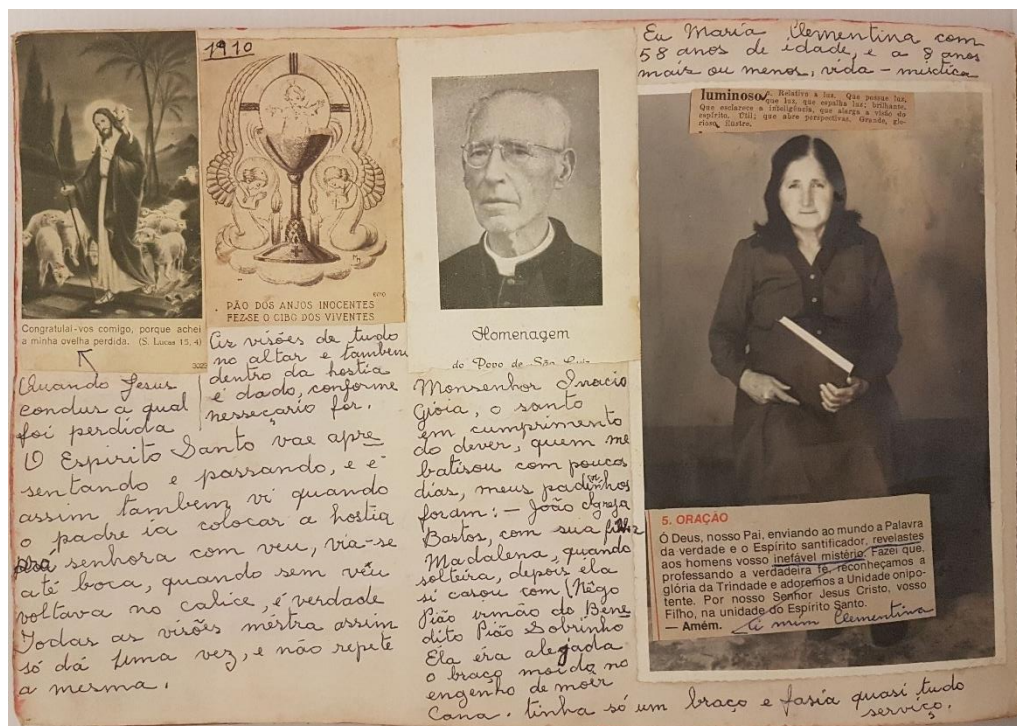 Congratulai-vos comigo, porque achei
a minha ovelha perdida. (S. Lucas 15, 4)
3022
Quando Jesus
condus a qual
foi perdida
1910
PÃO DOS ANJOS INOCENTES
FEZ-SE O CIBO DOS VIVENTES
As visões de tudo
no altar e tambem
dentro da hostia
é dado, conforme
nesseçario for.
O Espirito Santo vae apre
sentando e passando, e é
assim tambem vi quando
o padre ia colocar a hostia
prá, senhora com veu, via-se
até boca, quando sem véu
voltava no calice, é verdade
Todas as visões méstra assim
só dá uma vez, e não repite
a mesma.
Homenagem
do Povo de São Luiz
Monsenhor Inacio
Gioia, o santo
em cumprimento
do dever, quem me
batisou com poucos
dias, meus padinhos
foram: - João Igreja
Bastos, com sua filha
Madalena, quando
solteira, depois ela
si casou com (Nêgo
Pião irmão do Bene
dito Pião Sobrinho
Éla éra alejada
o braço moido no
engenho de moer
Cana. tinha só um braço e fasia quasi tudo
serviço.
Eu Maria Clementina com
58 anos de idade, e a 8 anos
maiz ou menos, vida - mistica
luminoso Relativo a luz. Que possue luz,
que luz, que espalha luz; brilhante.
Que esclarece a inteligência, que alarga a visão do
espírito. Útil; que abre perspectivas. Grande, glo-
rioso, ilustre.
5. ORAÇÃO
Ó Deus, nosso Pai, enviando ao mundo a Palavra
da verdade e o Espírito santificador, revelastes
aos homens vosso inefável mistério. Fazei que,
professando a verdadeira fé, reconheçamos a
glória da Trindade e adoremos a Unidade onipo-
tente. Por nosso Senhor Jesus Cristo, vosso
Filho, na unidade do Espírito Santo.
— Amém. a mim Clementina